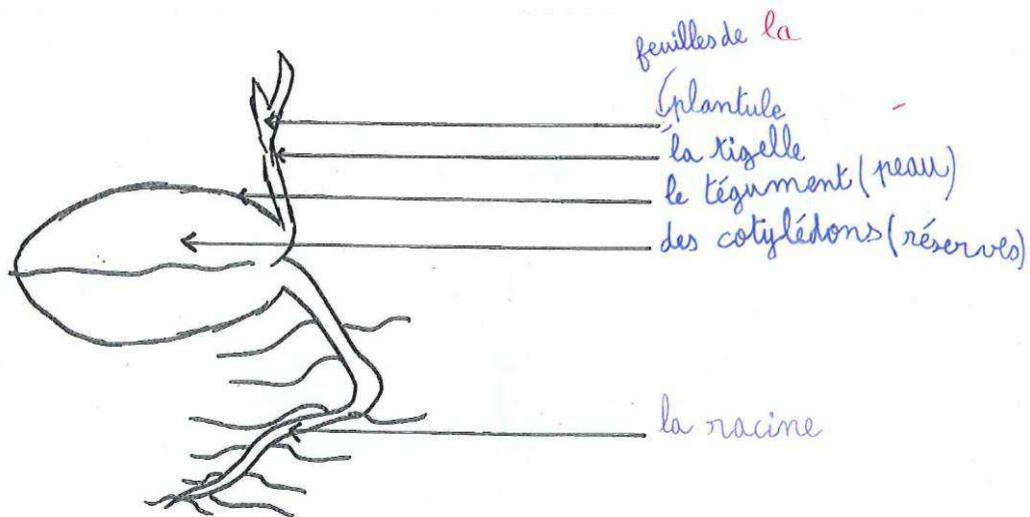 feuilles de la
(plantule
la tigelle
le tégument (peau)
des cotylédons (réserves)
la racine